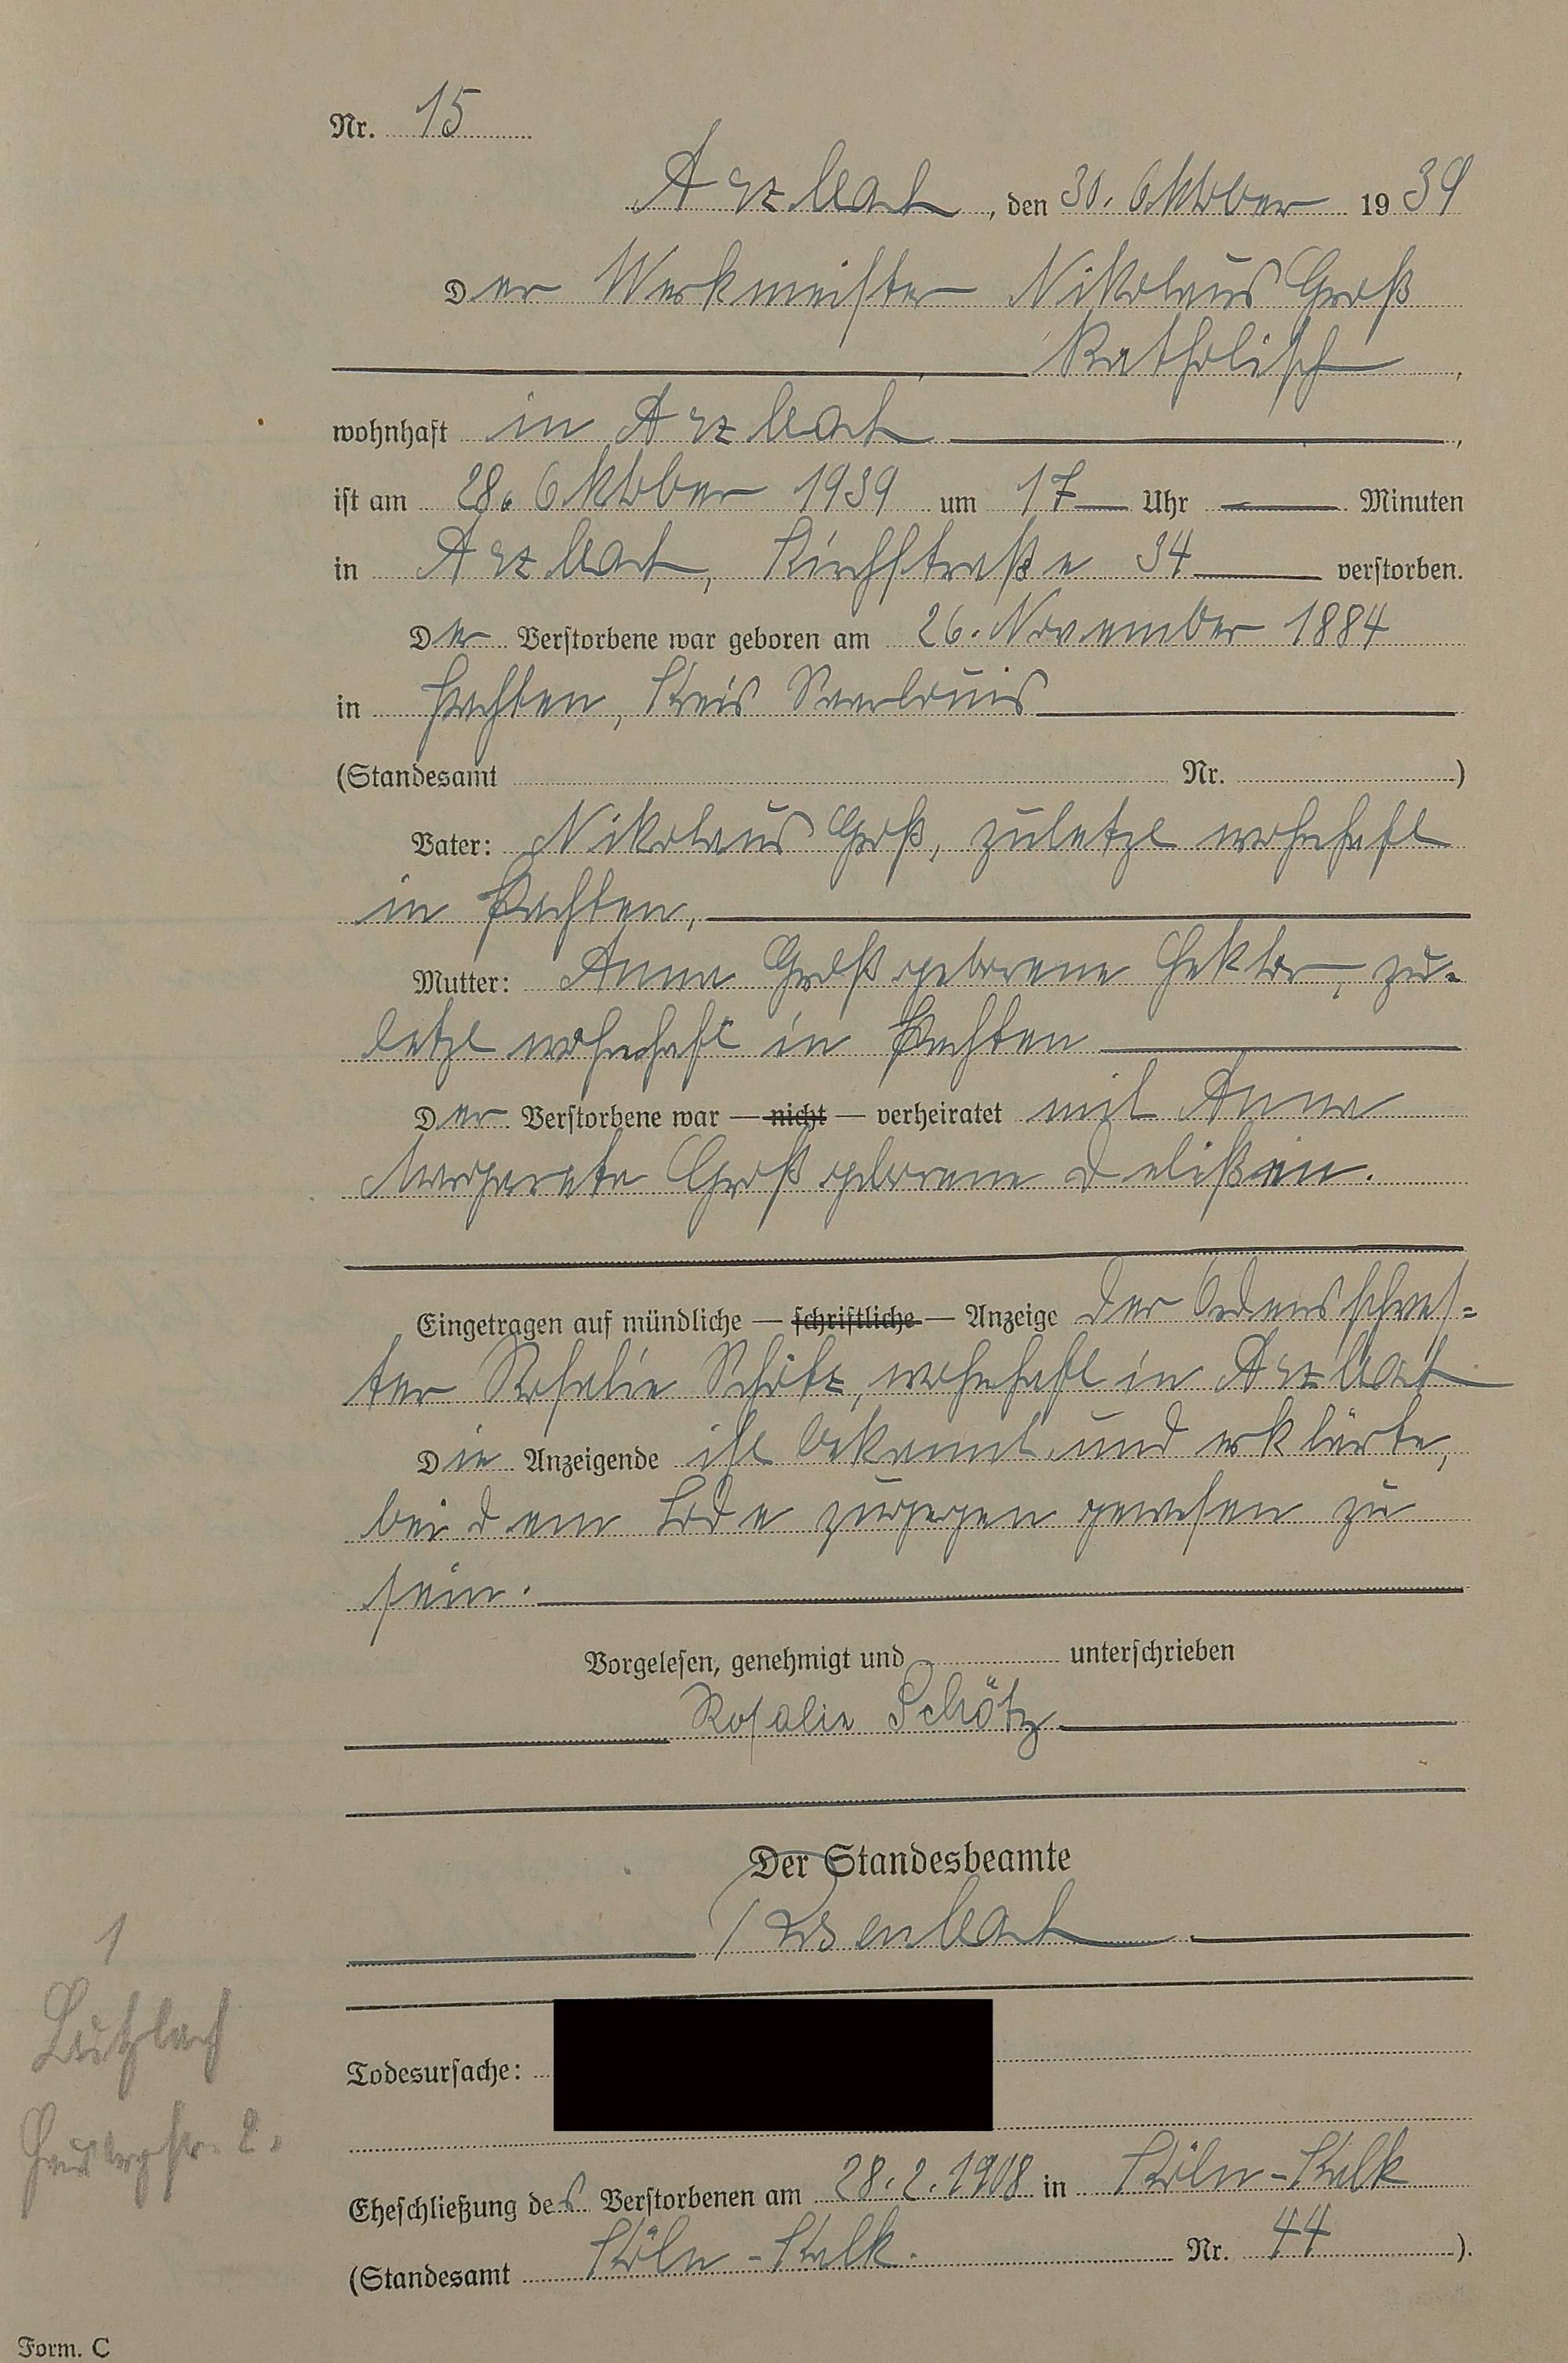 Nr. 15
Arzbach, den 30. Oktober 1939
Der Werkmeister Nikolaus Groß
katholisch,
wohnhaft in Arzbach,
ist am 28. Oktober 1939 um 17 Uhr Minuten
in Arzbach, Kirchstraße 34 verstorben.
Der Verstorbene war geboren am 26. November 1884
in Pachten, Kreis Saarlouis
(Standesamt Nr. )
Vater: Nikolaus Groß, zuletzt wohnhaft
in Pachten,
Mutter: Anna Groß geborene Hektor, zu-
letzt wohnhaft in Pachten
Der Verstorbene war — nicht — verheiratet mit Anna
Margareta Groß geborene
Eingetragen auf mündliche — schriftliche — Anzeige der Ordensschwes-
ter Rosalie Schötz, wohnhaft in Arzbach
Die Anzeigende ist bekannt und erklärte,
bei dem Tode zugegen gewesen zu
sein.
Vorgelesen, genehmigt und unterschrieben
Rosalie Schötz
Der Standesbeamte
Todesursache:
Eheschließung des Verstorbenen am 28.2.1908 in Köln-Kalk
(Standesamt Köln-Kalk. Nr. 44 ).
1
2.
Form. C